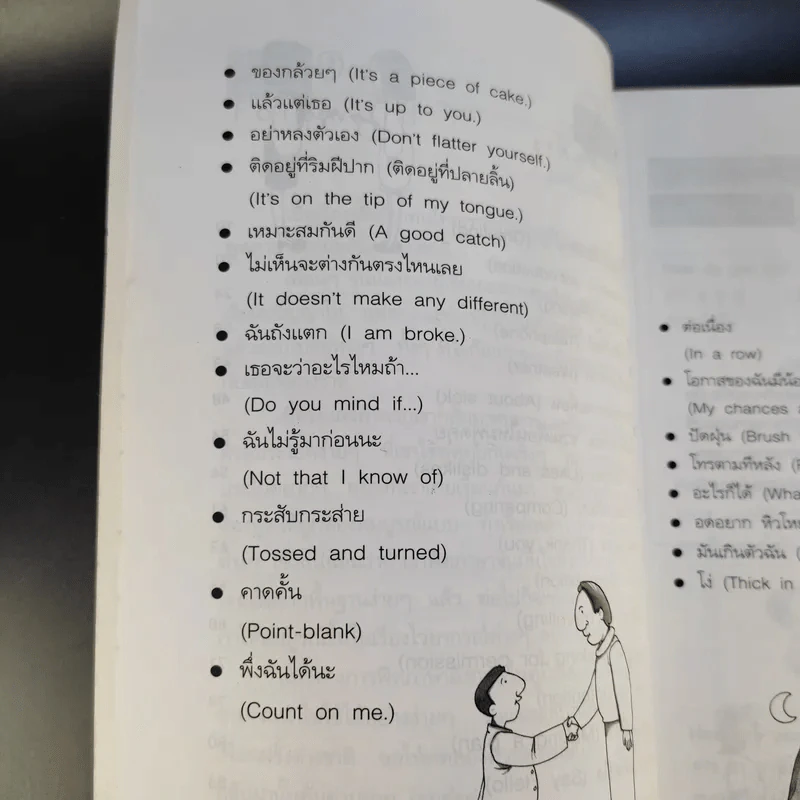 ● ของกล้วยๆ (It's a piece of cake.)
● แล้วแต่เธอ (It's up to you.)
● อย่าหลงตัวเอง (Don't flatter yourself.)
● ติดอยู่ที่ริมฝีปาก (ติดอยู่ที่ปลายลิ้น)
(It's on the tip of my tongue.)
● เหมาะสมกันดี (A good catch)
● ไม่เห็นจะต่างกันตรงไหนเลย
(It doesn't make any different)
● ฉันถังแตก (I am broke.)
● เธอจะว่าอะไรไหมถ้า...
(Do you mind if...)
● ฉันไม่รู้มาก่อนนะ
(Not that I know of)
● กระสับกระส่าย
(Tossed and turned)
● คาดคั้น
(Point-blank)
● พึ่งฉันได้นะ
(Count on me.)
● ต่อเนื่อง
(In a row)
● โอกาสของฉันมีน้อ
(My chances
● ปัดฝุ่น (Brush
● โทรตามทีหลัง
● อะไรก็ได้ (Wha
● อดอยาก หิวโห
● มันเกินตัวฉัน (
● โง่ (Thick in